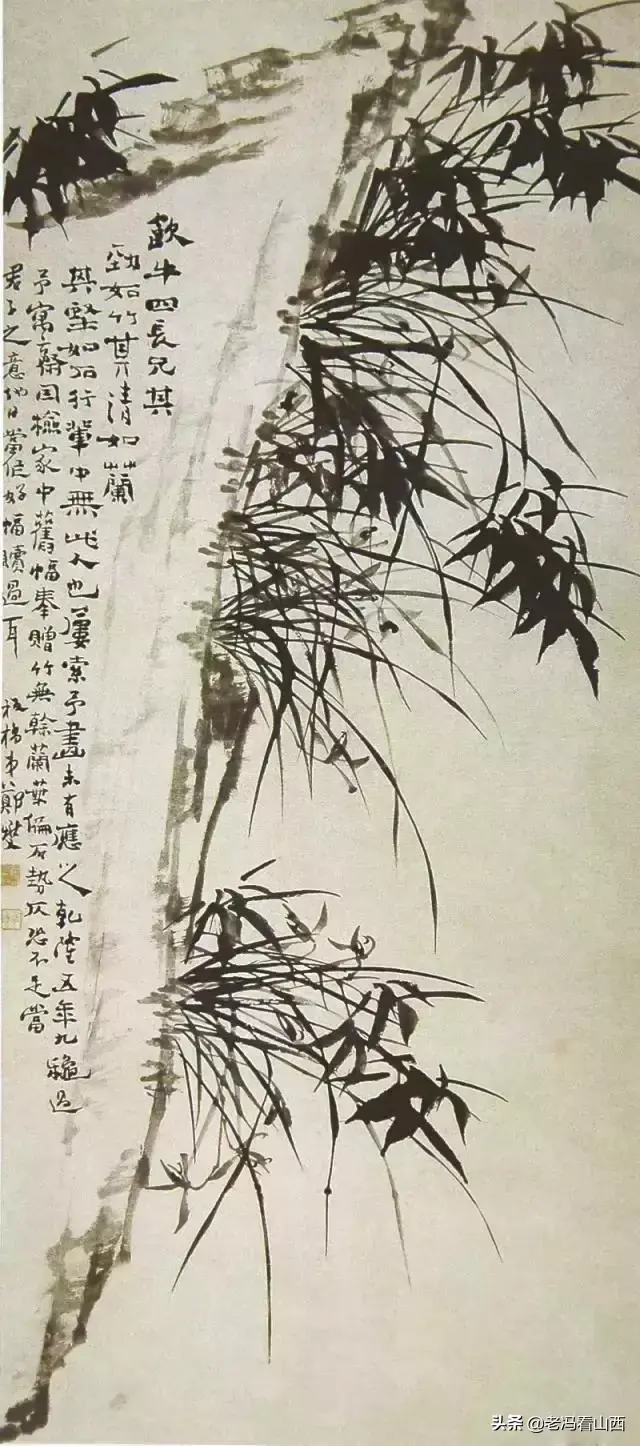 飲牛四長兄其
勁如竹其清如蘭
其堅如石行輩中無此人也屢索予畫未有應之乾隆五年九龝過
予寓齋因檢家中舊幅奉贈竹無幹蘭葉偏石勢仄恐不足當
君子之意他日當作好幅贖過耳 板橋弟鄭燮
头条 @老冯看山西